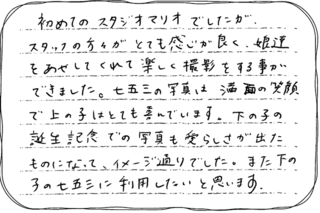 初めてのスタジオマリオでしたが、
スタッフの方々がとても感じが良く、娘達
をあやしてくれて楽しく撮影をする事が
できました。七五三の写真は満面の笑顔
で上の子はとても喜んでいます。下の子の
誕生記念での写真も愛らしさが出た
ものになって、イメージ通りでした。また下の
子の七五三に利用したいと思います。